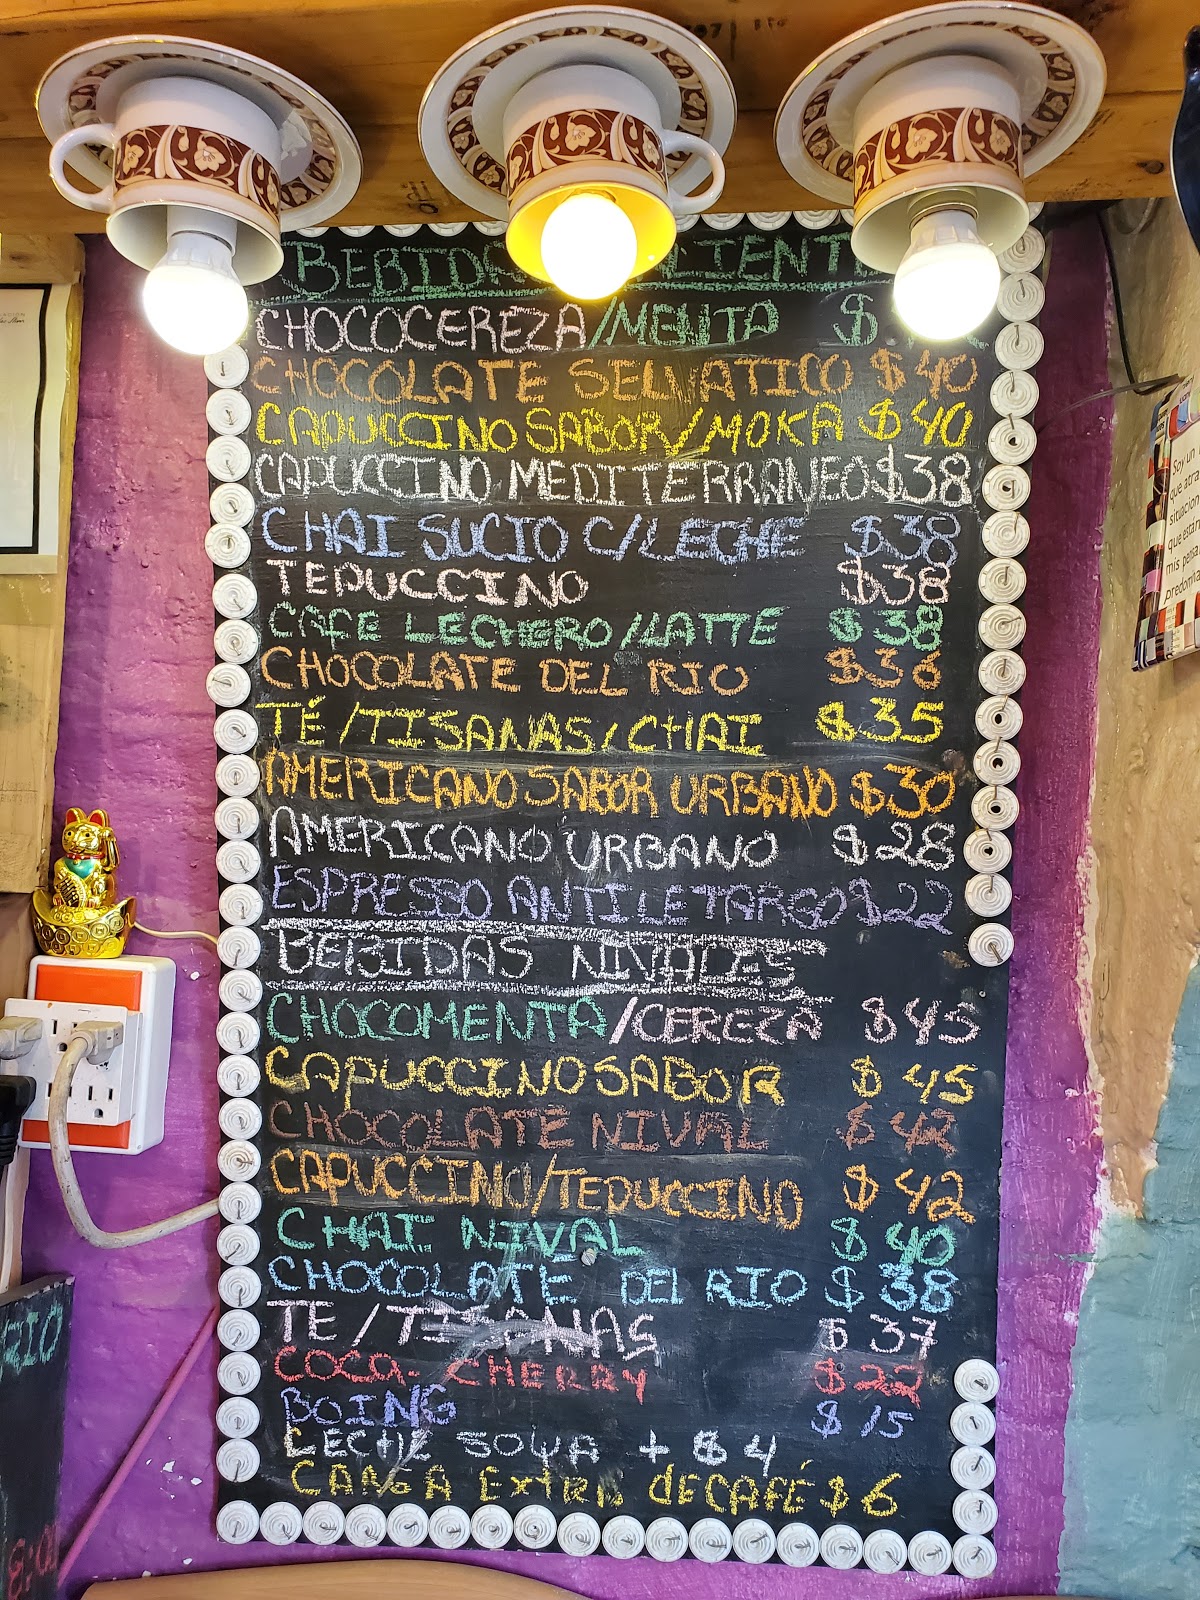 BEBIDAS CALIENTES
CHOCOCEREZA/MENTA $
CHOCOLATE SELVATICO $40
CAPUCCINO SABOR/MOKA $40
CAPUCCINO MEDITERRANEO $38
CHAI SUCIO C/LECHE $38
TEPUCCINO $38
CAFE LECHERO/LATTE $38
CHOCOLATE DEL RIO $36
TÉ/TISANAS/CHAI $35
AMERICANO SABOR URBANO $30
AMERICANO URBANO $28
ESPRESSO ANTILETARGO $22
BEBIDAS NIVALES
CHOCOMENTA/CEREZA $45
CAPUCCINO SABOR $45
CHOCOLATE NIVAL $42
CAPUCCINO/TEPUCCINO $42
CHAI NIVAL $40
CHOCOLATE DEL RIO $38
TE/TISANAS $37
COCA-CHERRY $22
BOING $15
LECHE SOYA + $4
CARGA EXTRA dECAFÉ $6
Soy un
que atra
situac
que est
mis pe
predomina